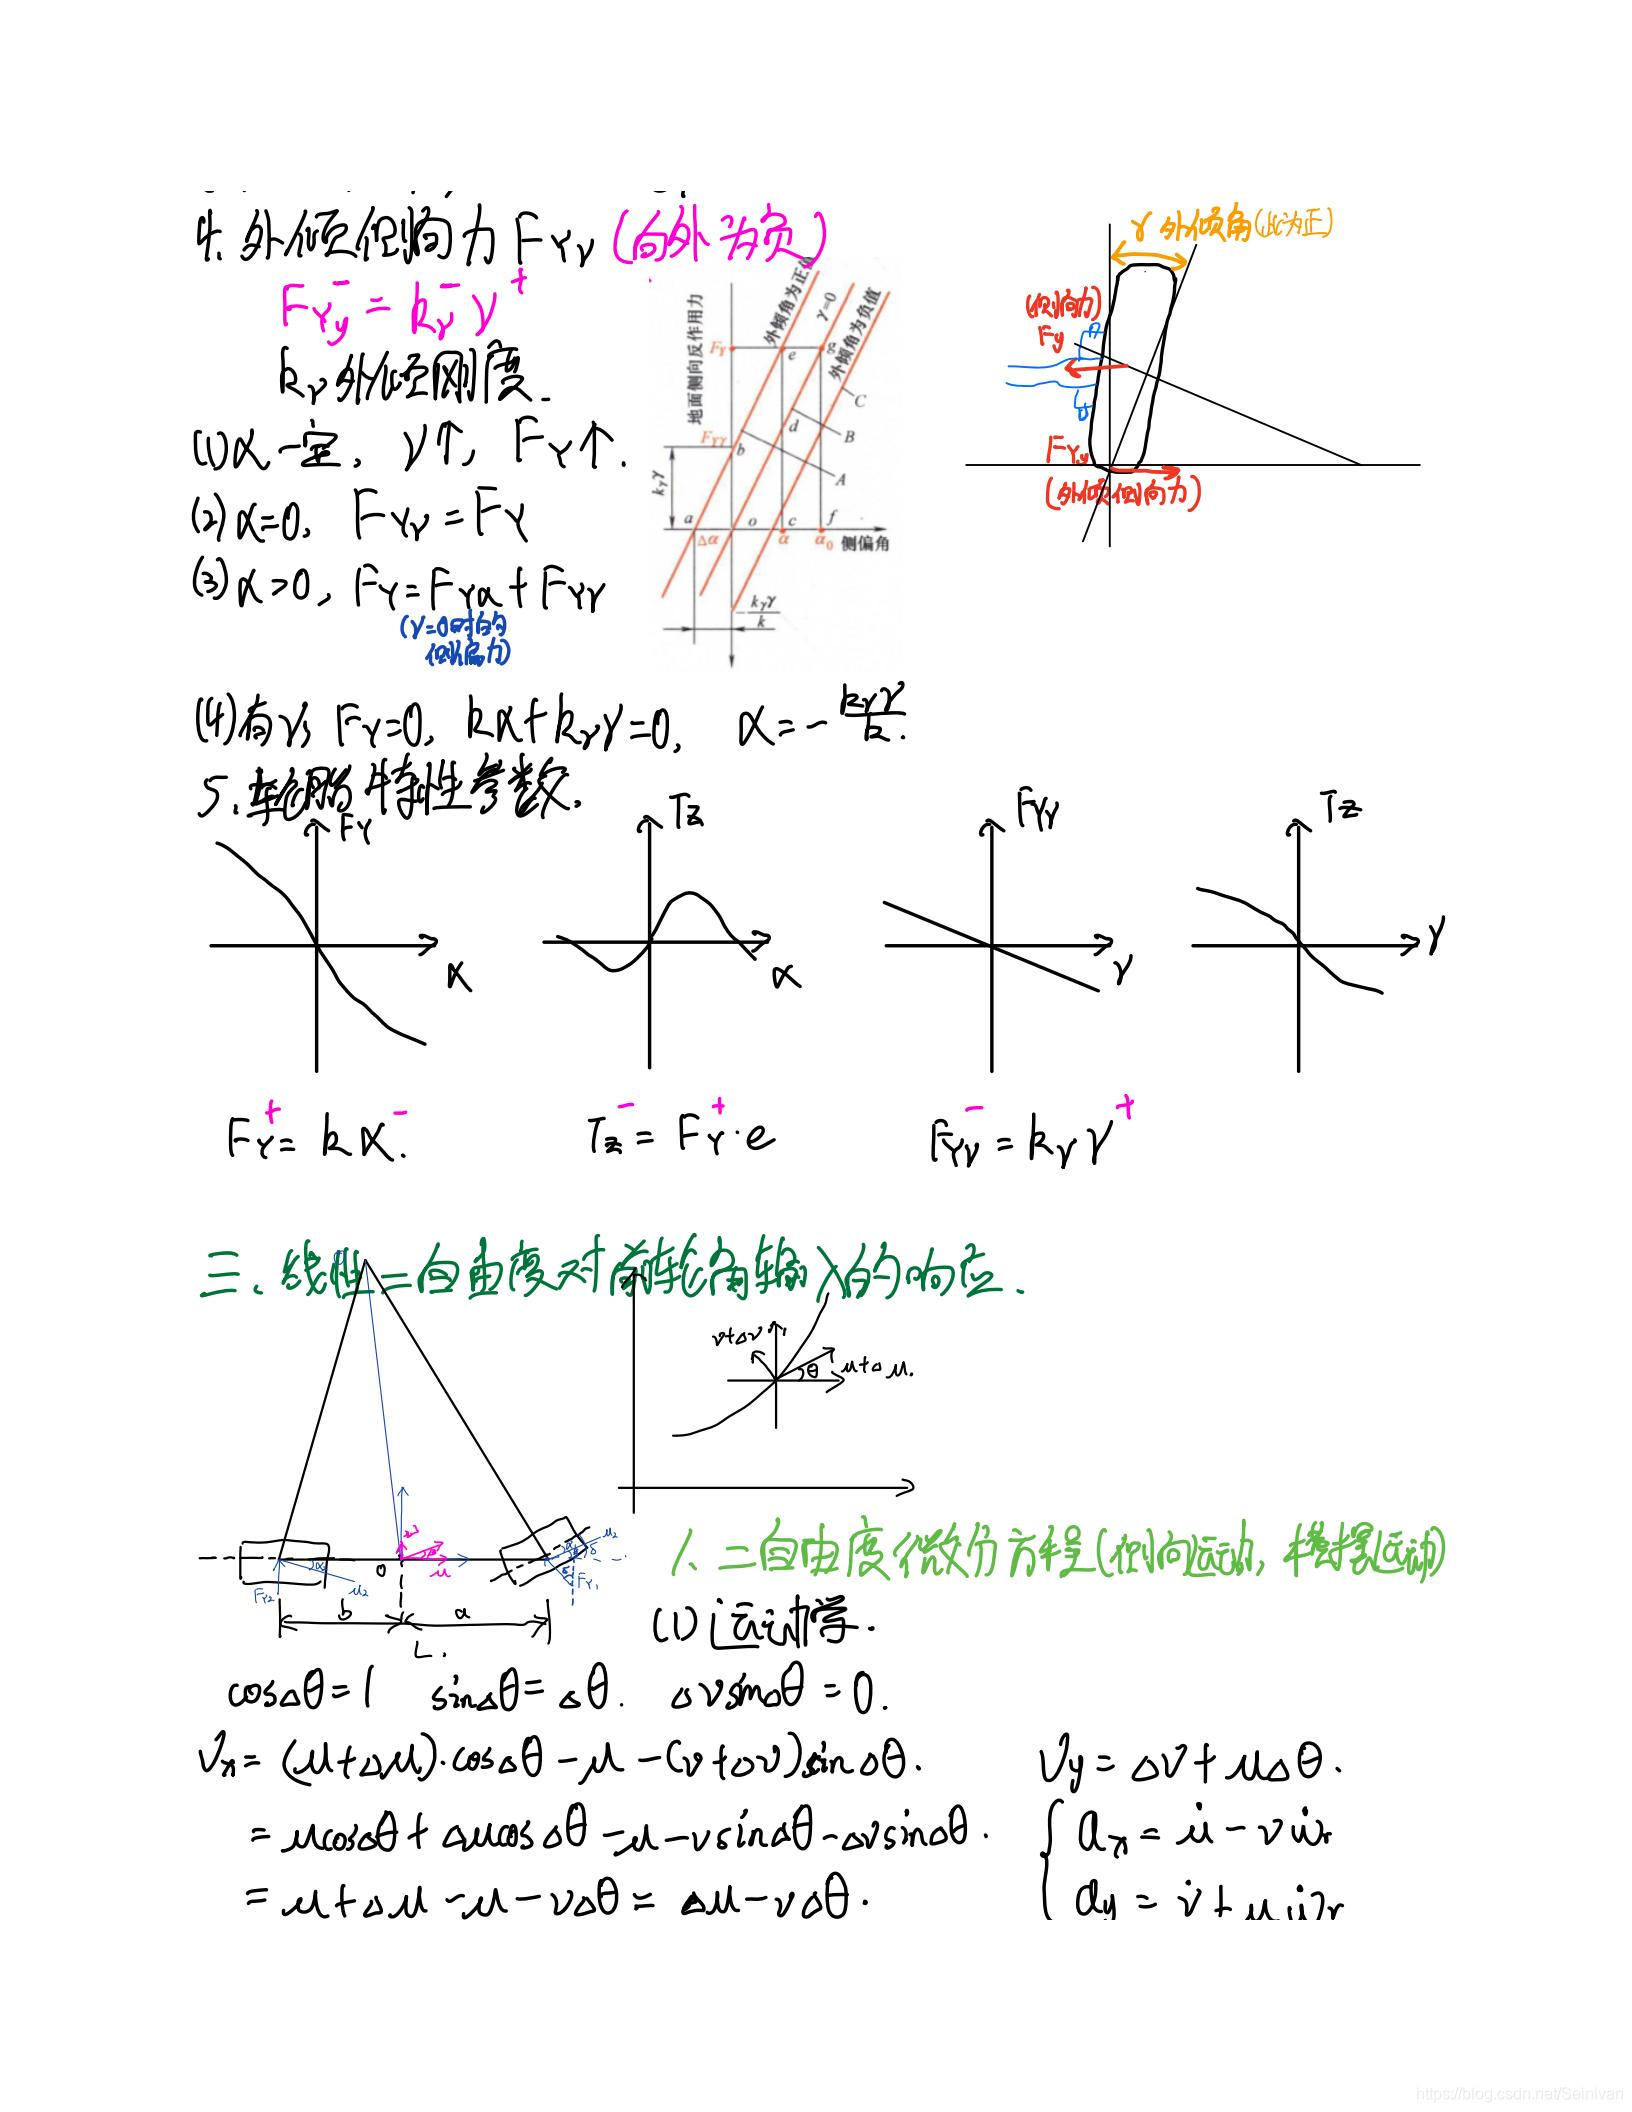 4. 外倾侧向力 FYγ (向外为负)
FYγ⁻ = kγ⁻ γ⁺
kγ 外倾刚度.
(1) α一定, γ↑, FY↑.
(2) α=0, FYγ = FY
(3) α>0, FY = FYα + FYγ
(γ=0时的
侧偏力)
(4) 有γ, FY=0, kα+kγγ=0, α=-kγγ/k.
地面侧向反作用力
外倾角为正值
γ=0
外倾角为负值
FY
e
g
C
d
B
FYγ
b
A
kγγ
a
o
c
f
Δα
α
α₀
侧偏角
-kγγ/k
γ 外倾角(此为正)
(侧向力)
Fy
FYγ
(外倾侧向力)
5. 轮胎特性参数.
FY
α
Tz
α
FYγ
γ
Tz
γ
FY⁺ = kα⁻.
Tz⁻ = FY⁺·e
FYγ⁻ = kγ γ⁺
三. 线性二自由度对前轮角输入的响应.
v+Δv
θ
u+Δu.
FY2
α
u2
o
u
u2
δ
FY1
b
a
L.
1. 二自由度微分方程(侧向运动, 横摆运动)
(1) 运动学.
cosΔθ=1 sinΔθ=Δθ. ΔvsinΔθ=0.
Vx = (u+Δu)·cosΔθ - u - (v+Δv)sinΔθ.
= ucosΔθ + ΔucosΔθ - u - vsinΔθ - ΔvsinΔθ.
= u+Δu - u - vΔθ = Δu - vΔθ.
Vy = Δv + uΔθ.
ax = u̇ - vẇr
ay = v̇ + uẇr
https://blog.csdn.net/SeinIvan